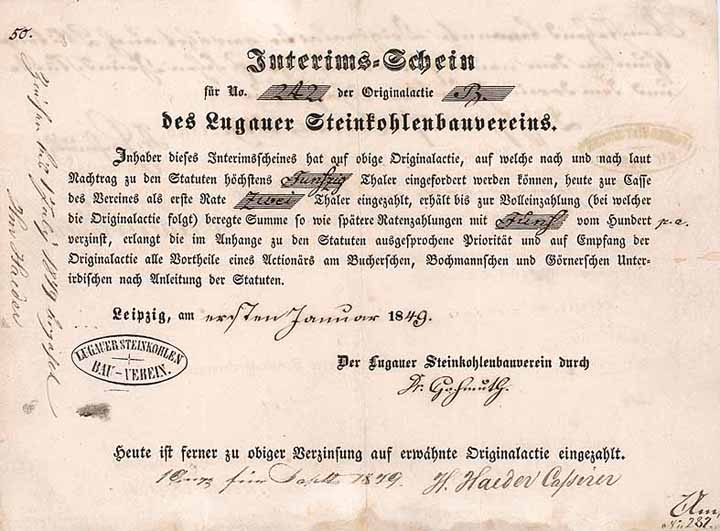 50.
Interims-Schein
für No. 242 der Originalactie B.
des Lugauer Steinkohlenbauvereins.
Inhaber dieses Interimsscheines hat auf obige Originalactie, auf welche nach und nach laut
Nachtrag zu den Statuten höchstens Funfzig Thaler eingefordert werden können, heute zur Casse
des Vereines als erste Rate Zwei Thaler eingezahlt, erhält bis zur Volleinzahlung (bei welcher
die Originalactie folgt) beregte Summe so wie spätere Ratenzahlungen mit Fünf vom Hundert p. a.
verzinst, erlangt die im Anhange zu den Statuten ausgesprochene Priorität und auf Empfang der
Originalactie alle Vortheile eines Actionärs am Bucherschen, Bochmannschen und Görnerschen Unter-
irdischen nach Anleitung der Statuten.
Leipzig, am ersten Januar 1849.
LUGAUER STEINKOHLEN
BAU-VEREIN.
Der Lugauer Steinkohlenbauverein durch
Dr.
Heute ist ferner zu obiger Verzinsung auf erwähnte Originalactie eingezahlt.
1849 H. Haeder Cassirer
1849
Haeder
No. 232.